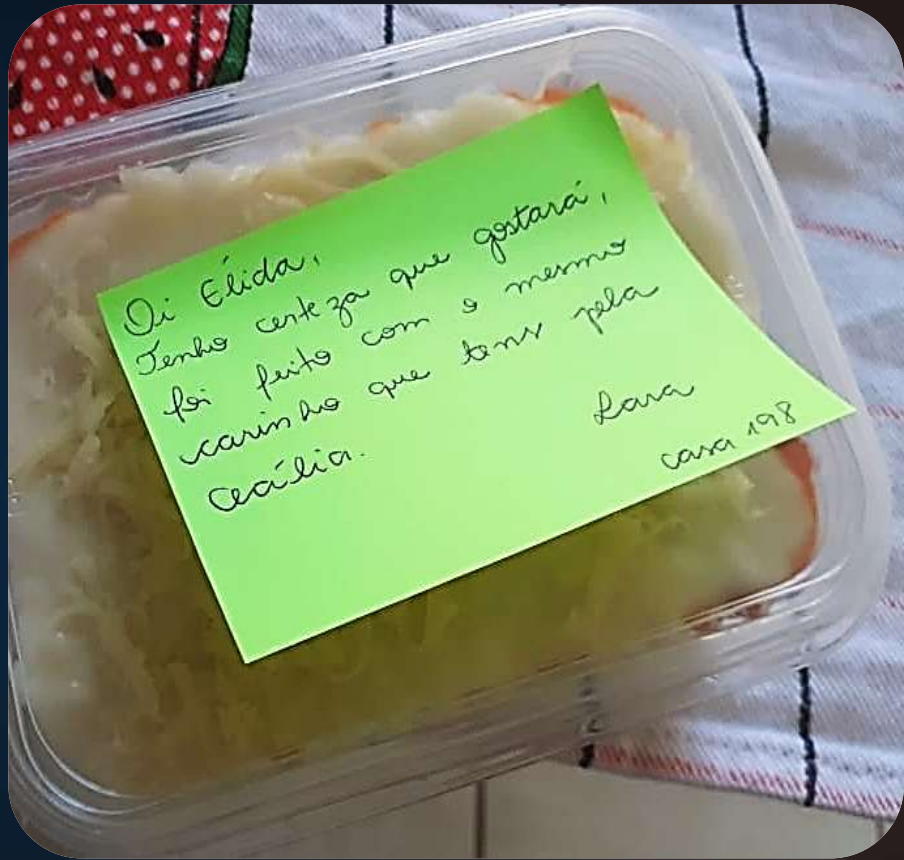 Oi Élida,
Tenho certeza que gostará,
foi feito com o mesmo
carinho que tens pela
Cecália.
Lara
casa 198